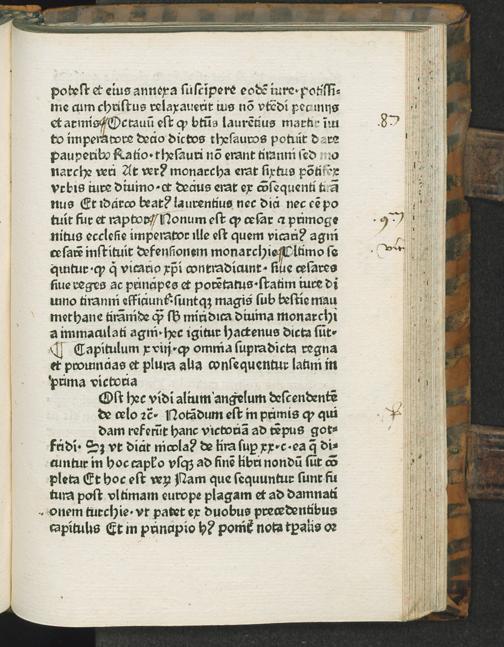 potest et eius annexa suscipere eodē iure· potissi-
me cum christus relaxauerit ius nō vtēdi pecuniis
et armis Octauū est ꝙ btūs laurētius martir īui
to imperatore decio dictos thesauros potuit dare
pauperibꝰ Ratio· thesauri nō erant tiranni sed mo
narche veri At verꝰ monarcha erat sixtus pōtifex
vrbis iure diuino· et decius erat ex cōsequenti tirā
nus Et idcirco beatꝰ laurentius nec dici nec cē po
tuit fur et raptor Nonum est ꝙ cesar a primoge
nitus ecclesie imperator ille est quem vicariꝰ agni
cesarē instituit defensionem monarchie Ultimo se
quitur· ꝙ ꝗ vicario xp̄i contradicunt· siue cesares
siue reges ac principes et potētatus· statim iure di
uino tiranni efficiunt· sunt qꝫ magis sub bestie mau
methane tirānide ꝙ̄ sb̄ miridica diuina monarchi
a immaculati agni· hec igitur hactenus dicta sūt·
¶ Capitulum xviij· ꝙ omnia supradicta regna
et prouincias et plura alia consequentur latini in
prima victoria
Ost hec vidi alium angelum descendentē
de celo ⁊c̄· Notādum est in primis ꝙ qui
dam referūt hanc victoriā ad tēpus got-
fridi· Sꝫ vt dicit nicolaꝰ de lira sup xx· c· ea q̄ di-
cuntur in hoc caplo vsqꝫ ad finē libri nondū sūt cō
pleta Et hoc est verū Nam que sequuntur sunt fu
tura post vltimam europe plagam et ad damnati
onem turchie· vt patet ex duobus precedentibus
capitulis Et in principio hꝰ nota tpalis or
8ꝰ
·9ꝰ